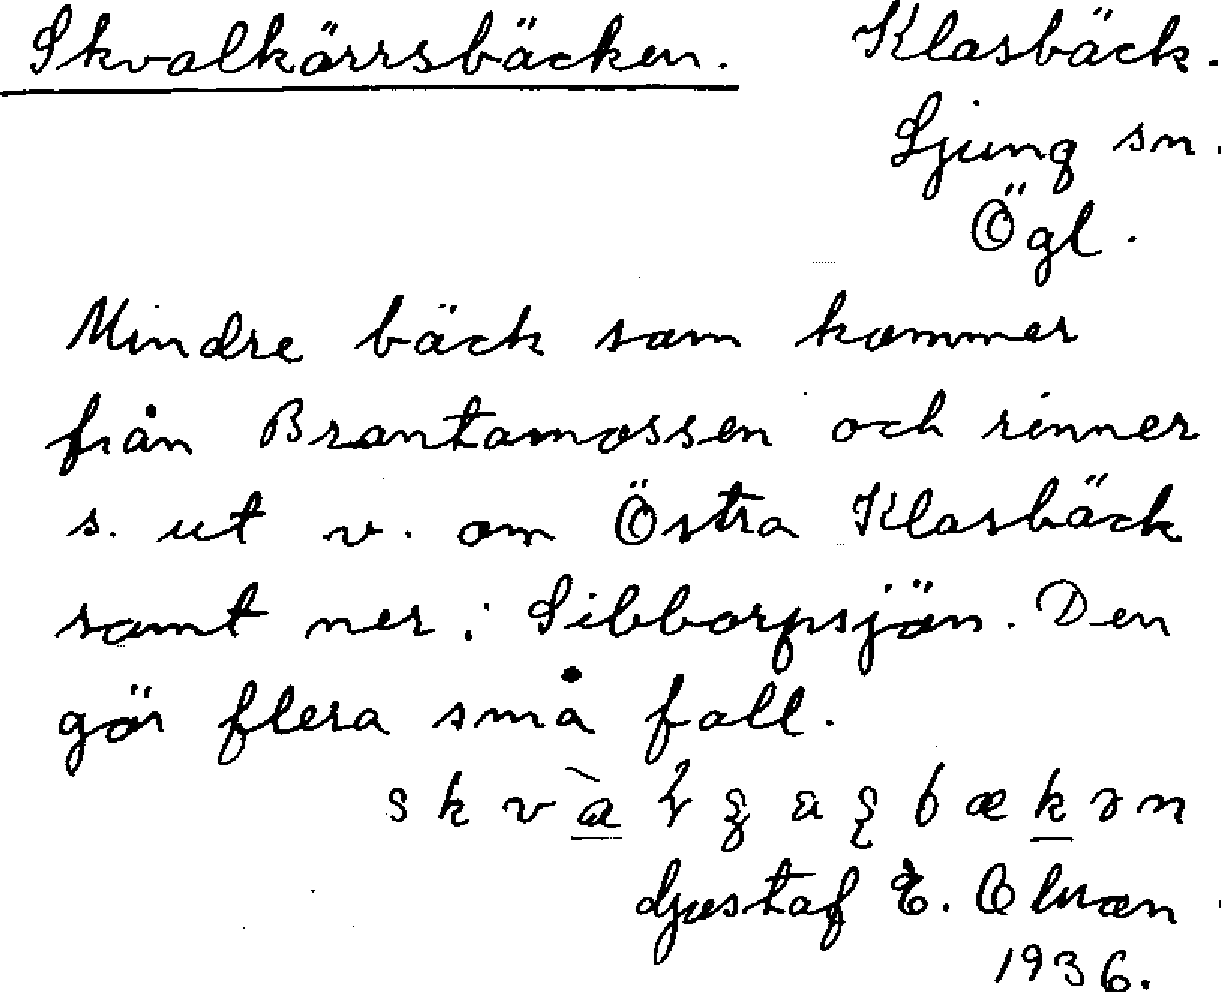 Skvalkärrsbäcken. Klasbäck.
Ljung sn.
Ögl.
Mindre bäck som kommer
från Brantamossen och rinner
s. ut v. om Östra Klasbäck
samt ner i Sibborpsjön. Den
gör flera små fall.
Gustaf E.
1936.